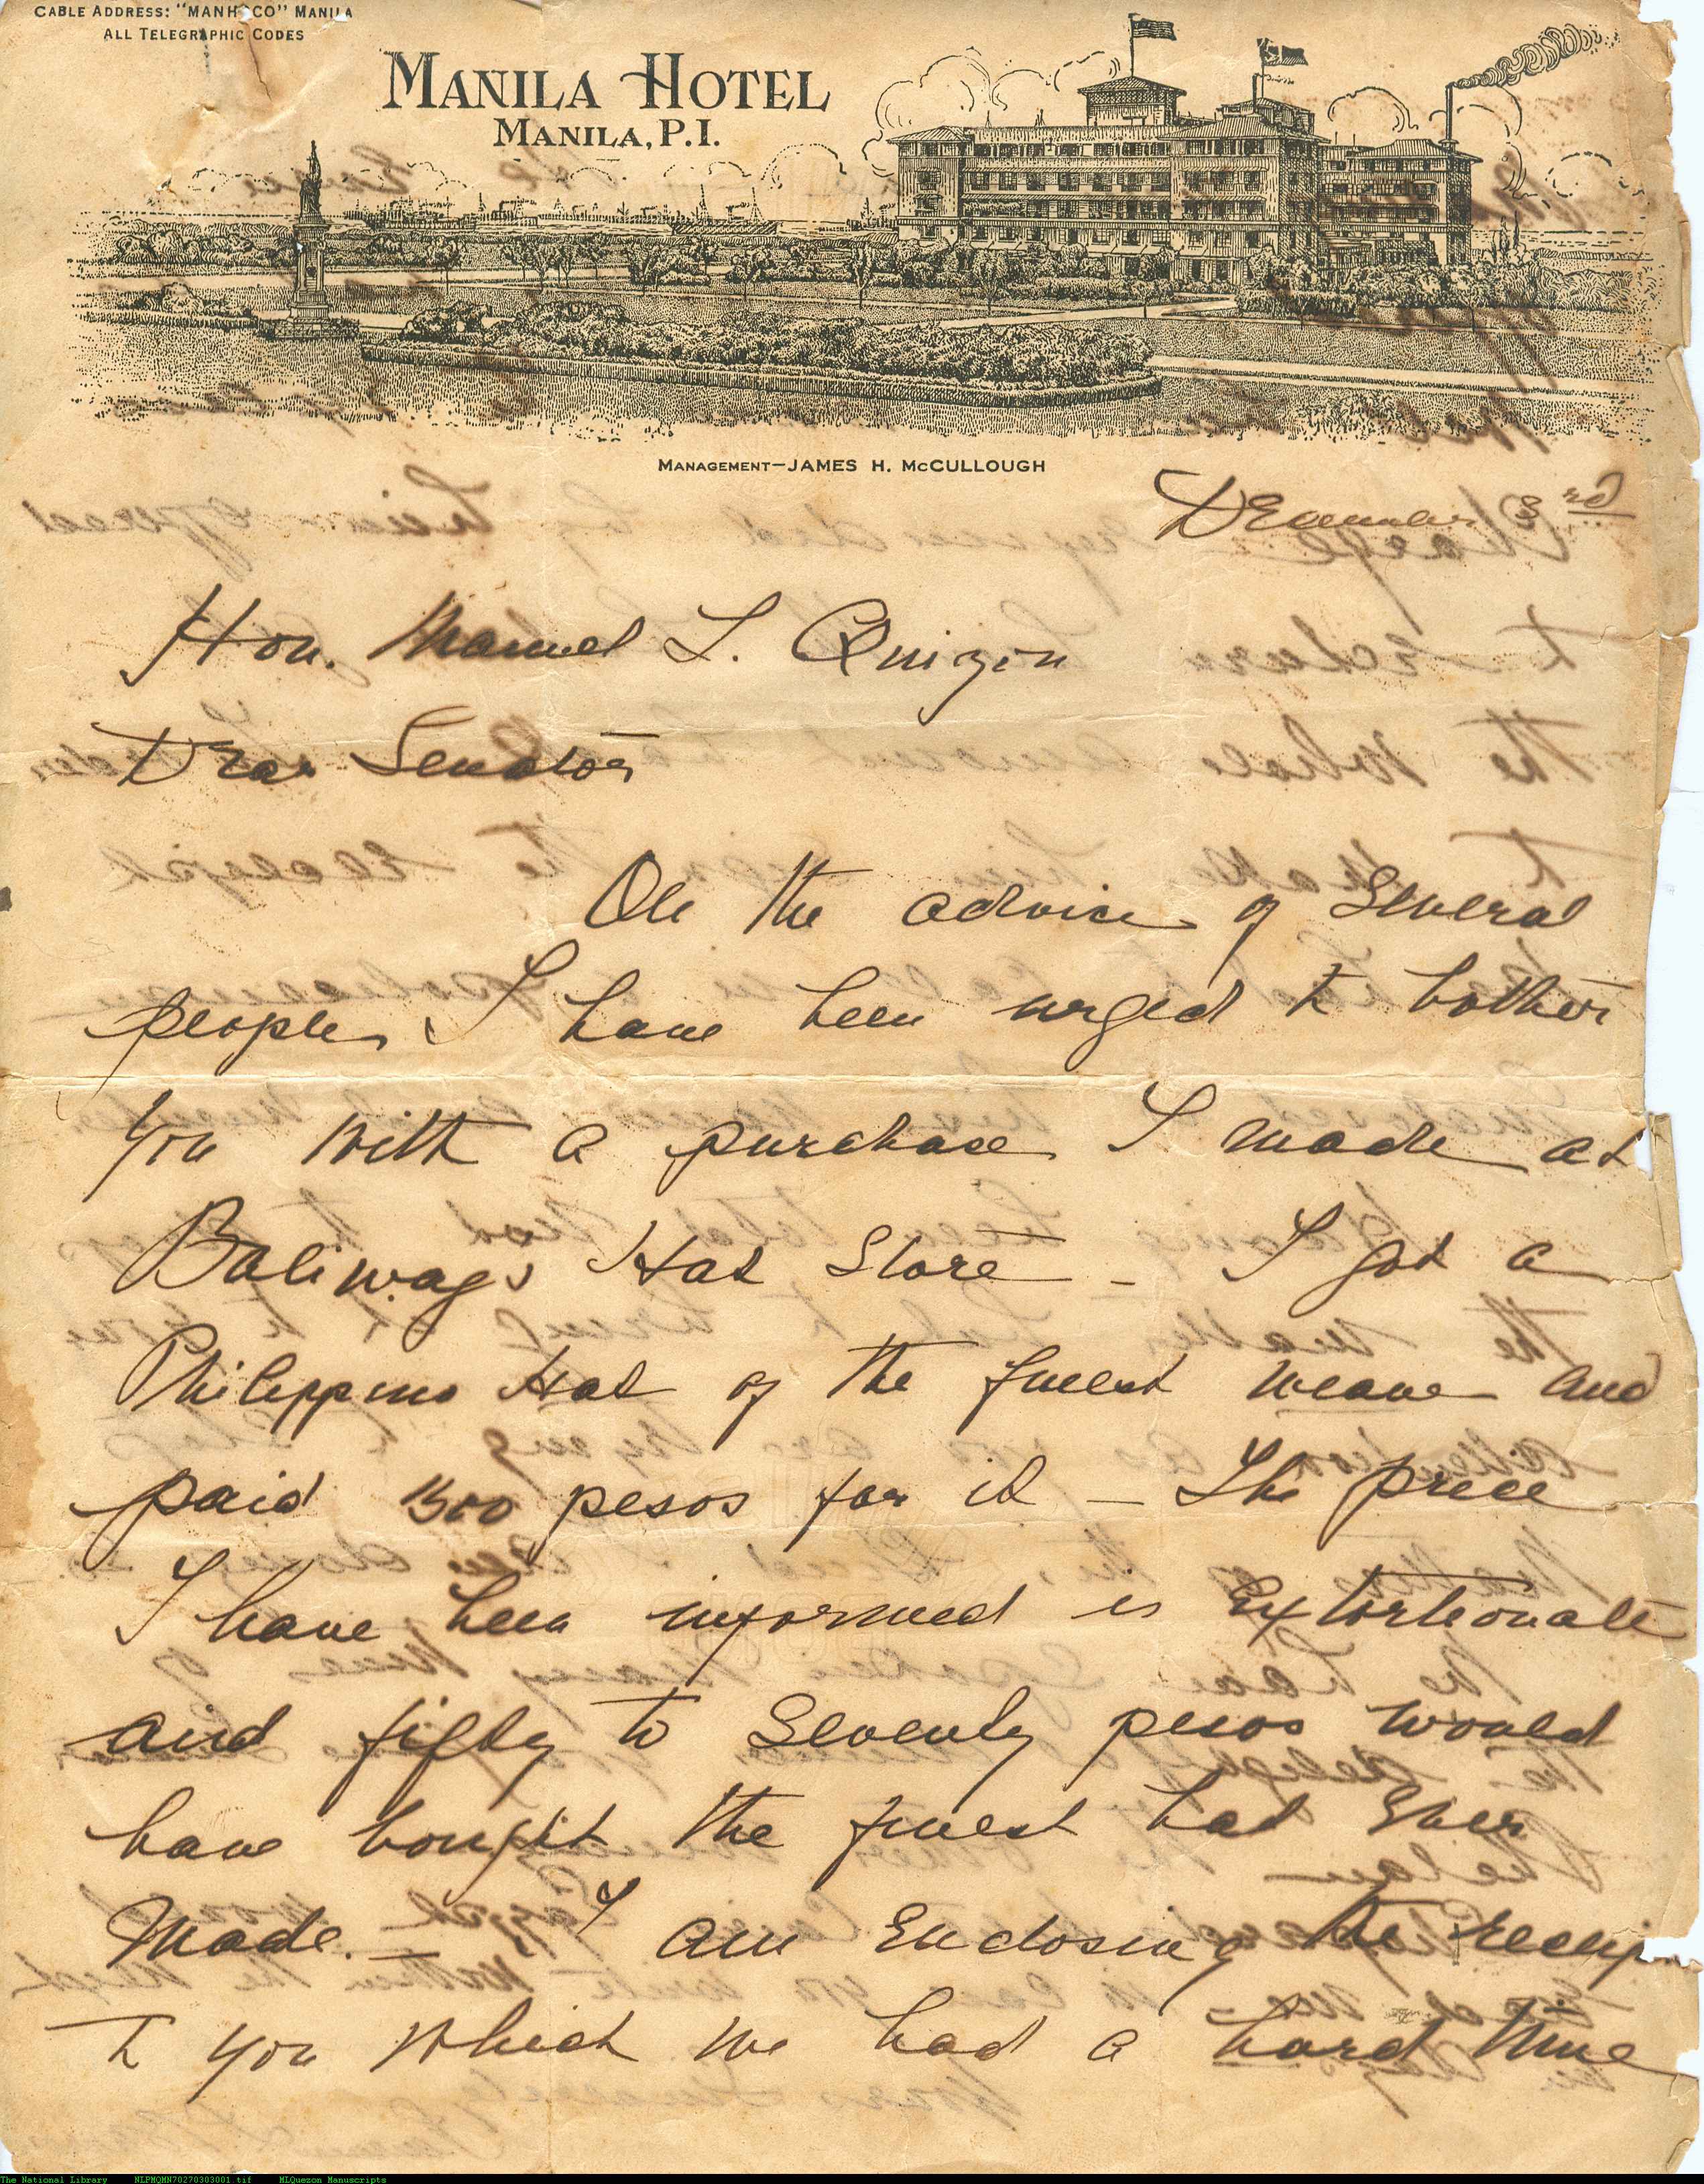 CABLE ADDRESS: "MANH CO" MANILA
ALL TELEGRAPHIC CODES
MANILA HOTEL
MANILA, P.I.
MANAGEMENT—JAMES H. McCULLOUGH
December 3rd
Hon. Manuel L. Quizon
Dear Senator
On the advice of several
people, I have been urged to bother
you with a purchase I made at
Baliwags Hat Store - I got a
Philippino Hat of the finest weave and
paid 1500 pesos for it - The price
I have been informed is Extortionate
and fifty to seventy pesos would
have bought the finest hat Ever
Made. - I am Enclosing the receip
to you which we had a hard time
The National Library NLPMQMN70270303001.tif MLQuezon Manuscripts